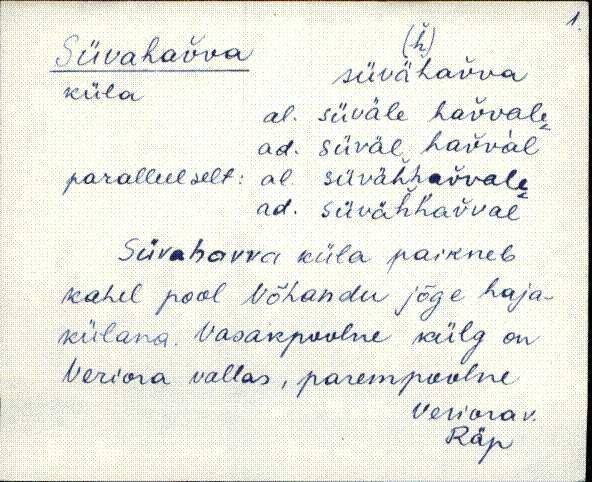 1.
Süvahav̌va
(ȟ)
süväȟav̌va
küla
al. süväle hav̌vale̮
ad. süväl hav̌val
parallelselt: al. süväȟȟav̌vale̮
ad. süväȟȟav̌val
Süvahavva küla paikneb
kahel pool Võhandu jõge haja-
külana. Vasakpoolne külg on
Veriora vallas, parempoolne
Veriora v.
Räp